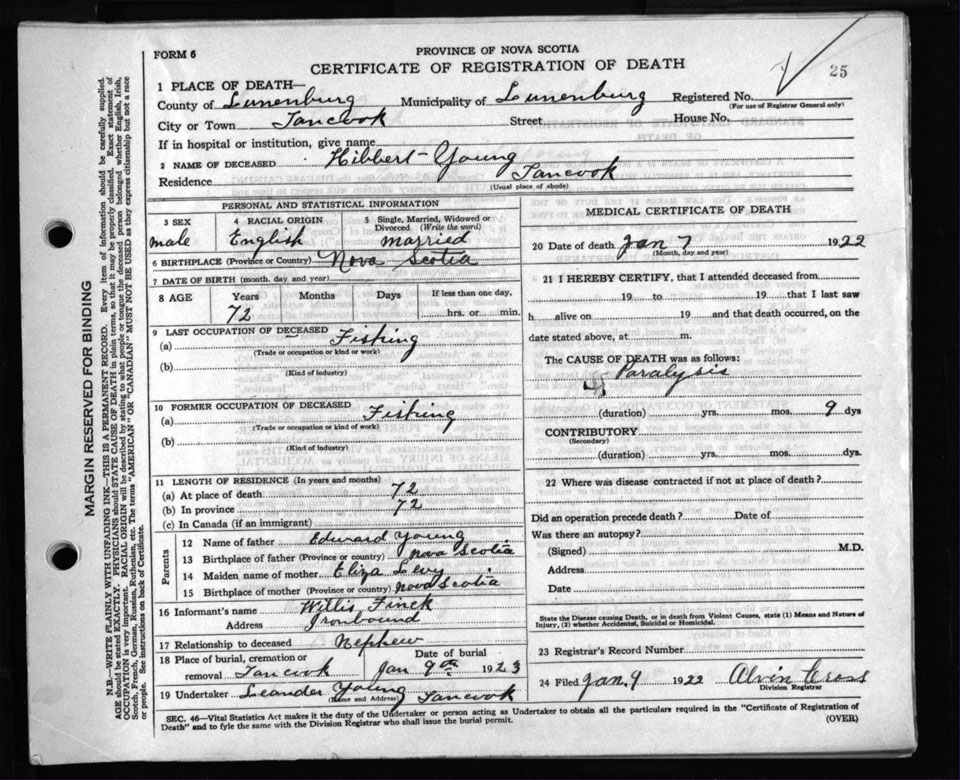 FORM 6
PROVINCE OF NOVA SCOTIA
CERTIFICATE OF REGISTRATION OF DEATH
25
1 PLACE OF DEATH—
County of Lunenburg Municipality of Lunenburg Registered No.
(For use of Registrar General only)
City or Town Tancook Street House No.
If in hospital or institution, give name
2 NAME OF DECEASED Hibbert Young
Residence Tancook
(Usual place of abode)
PERSONAL AND STATISTICAL INFORMATION
3 SEX male
4 RACIAL ORIGIN English
5 Single, Married, Widowed or Divorced (Write the word) married
6 BIRTHPLACE (Province or Country) Nova Scotia
7 DATE OF BIRTH (month, day and year)
8 AGE Years Months Days If less than one day,
72 hrs. or min.
9 LAST OCCUPATION OF DECEASED
(a) Fishing
(Trade or occupation or kind of work)
(b)
(Kind of industry)
10 FORMER OCCUPATION OF DECEASED
(a) Fishing
(Trade or occupation or kind of work)
(b)
(Kind of industry)
11 LENGTH OF RESIDENCE (In years and months)
(a) At place of death 72
(b) In province 72
(c) In Canada (if an immigrant)
Parents
12 Name of father Edward Young
13 Birthplace of father (Province or country) Nova Scotia
14 Maiden name of mother Eliza Levy
15 Birthplace of mother (Province or country) Nova Scotia
16 Informant's name Willis Finck
Address Ironbound
17 Relationship to deceased Nephew
18 Place of burial, cremation or removal Tancook
Date of burial Jan 9th 1923
19 Undertaker Leander Young Tancook
(Name and Address)
MEDICAL CERTIFICATE OF DEATH
20 Date of death Jan 7 1922
(Month, day and year)
21 I HEREBY CERTIFY, that I attended deceased from
19 to 19 that I last saw
h alive on 19 and that death occurred, on the
date stated above, at m.
The CAUSE OF DEATH was as follows:
Paralysis
(duration) yrs. mos. 9 dys
CONTRIBUTORY
(Secondary)
(duration) yrs. mos. dys
22 Where was disease contracted if not at place of death?
Did an operation precede death? Date of
Was there an autopsy?
(Signed) M.D.
Address
Date
State the Disease causing Death, or in death from Violent Causes, state (1) Means and Nature of
Injury, (2) whether Accidental, Suicidal or Homicidal.
23 Registrar's Record Number
24 Filed Jan. 9 1922 Alvin Cross
Division Registrar
SEC. 46—Vital Statistics Act makes it the duty of the Undertaker or person acting as Undertaker to obtain all the particulars required in the "Certificate of Registration of
Death" and to fyle the same with the Division Registrar who shall issue the burial permit.
(OVER)
MARGIN RESERVED FOR BINDING
N.B—WRITE PLAINLY WITH UNFADING INK—THIS IS A PERMANENT RECORD. Every item of information should be carefully supplied.
AGE should be stated EXACTLY. PHYSICIANS should STATE CAUSE OF DEATH in plain terms, so that it may be properly classified. Exact statement of
OCCUPATION is very important. RACIAL ORIGIN will be described by stating to what people or tongue the deceased person belonged whether English, Irish,
Scotch, French, German, Russian, Ruthenian, etc. The terms "AMERICAN" OR "CANADIAN" MUST NOT BE USED as they express citizenship but not a race
or people. See instructions on back of Certificate.